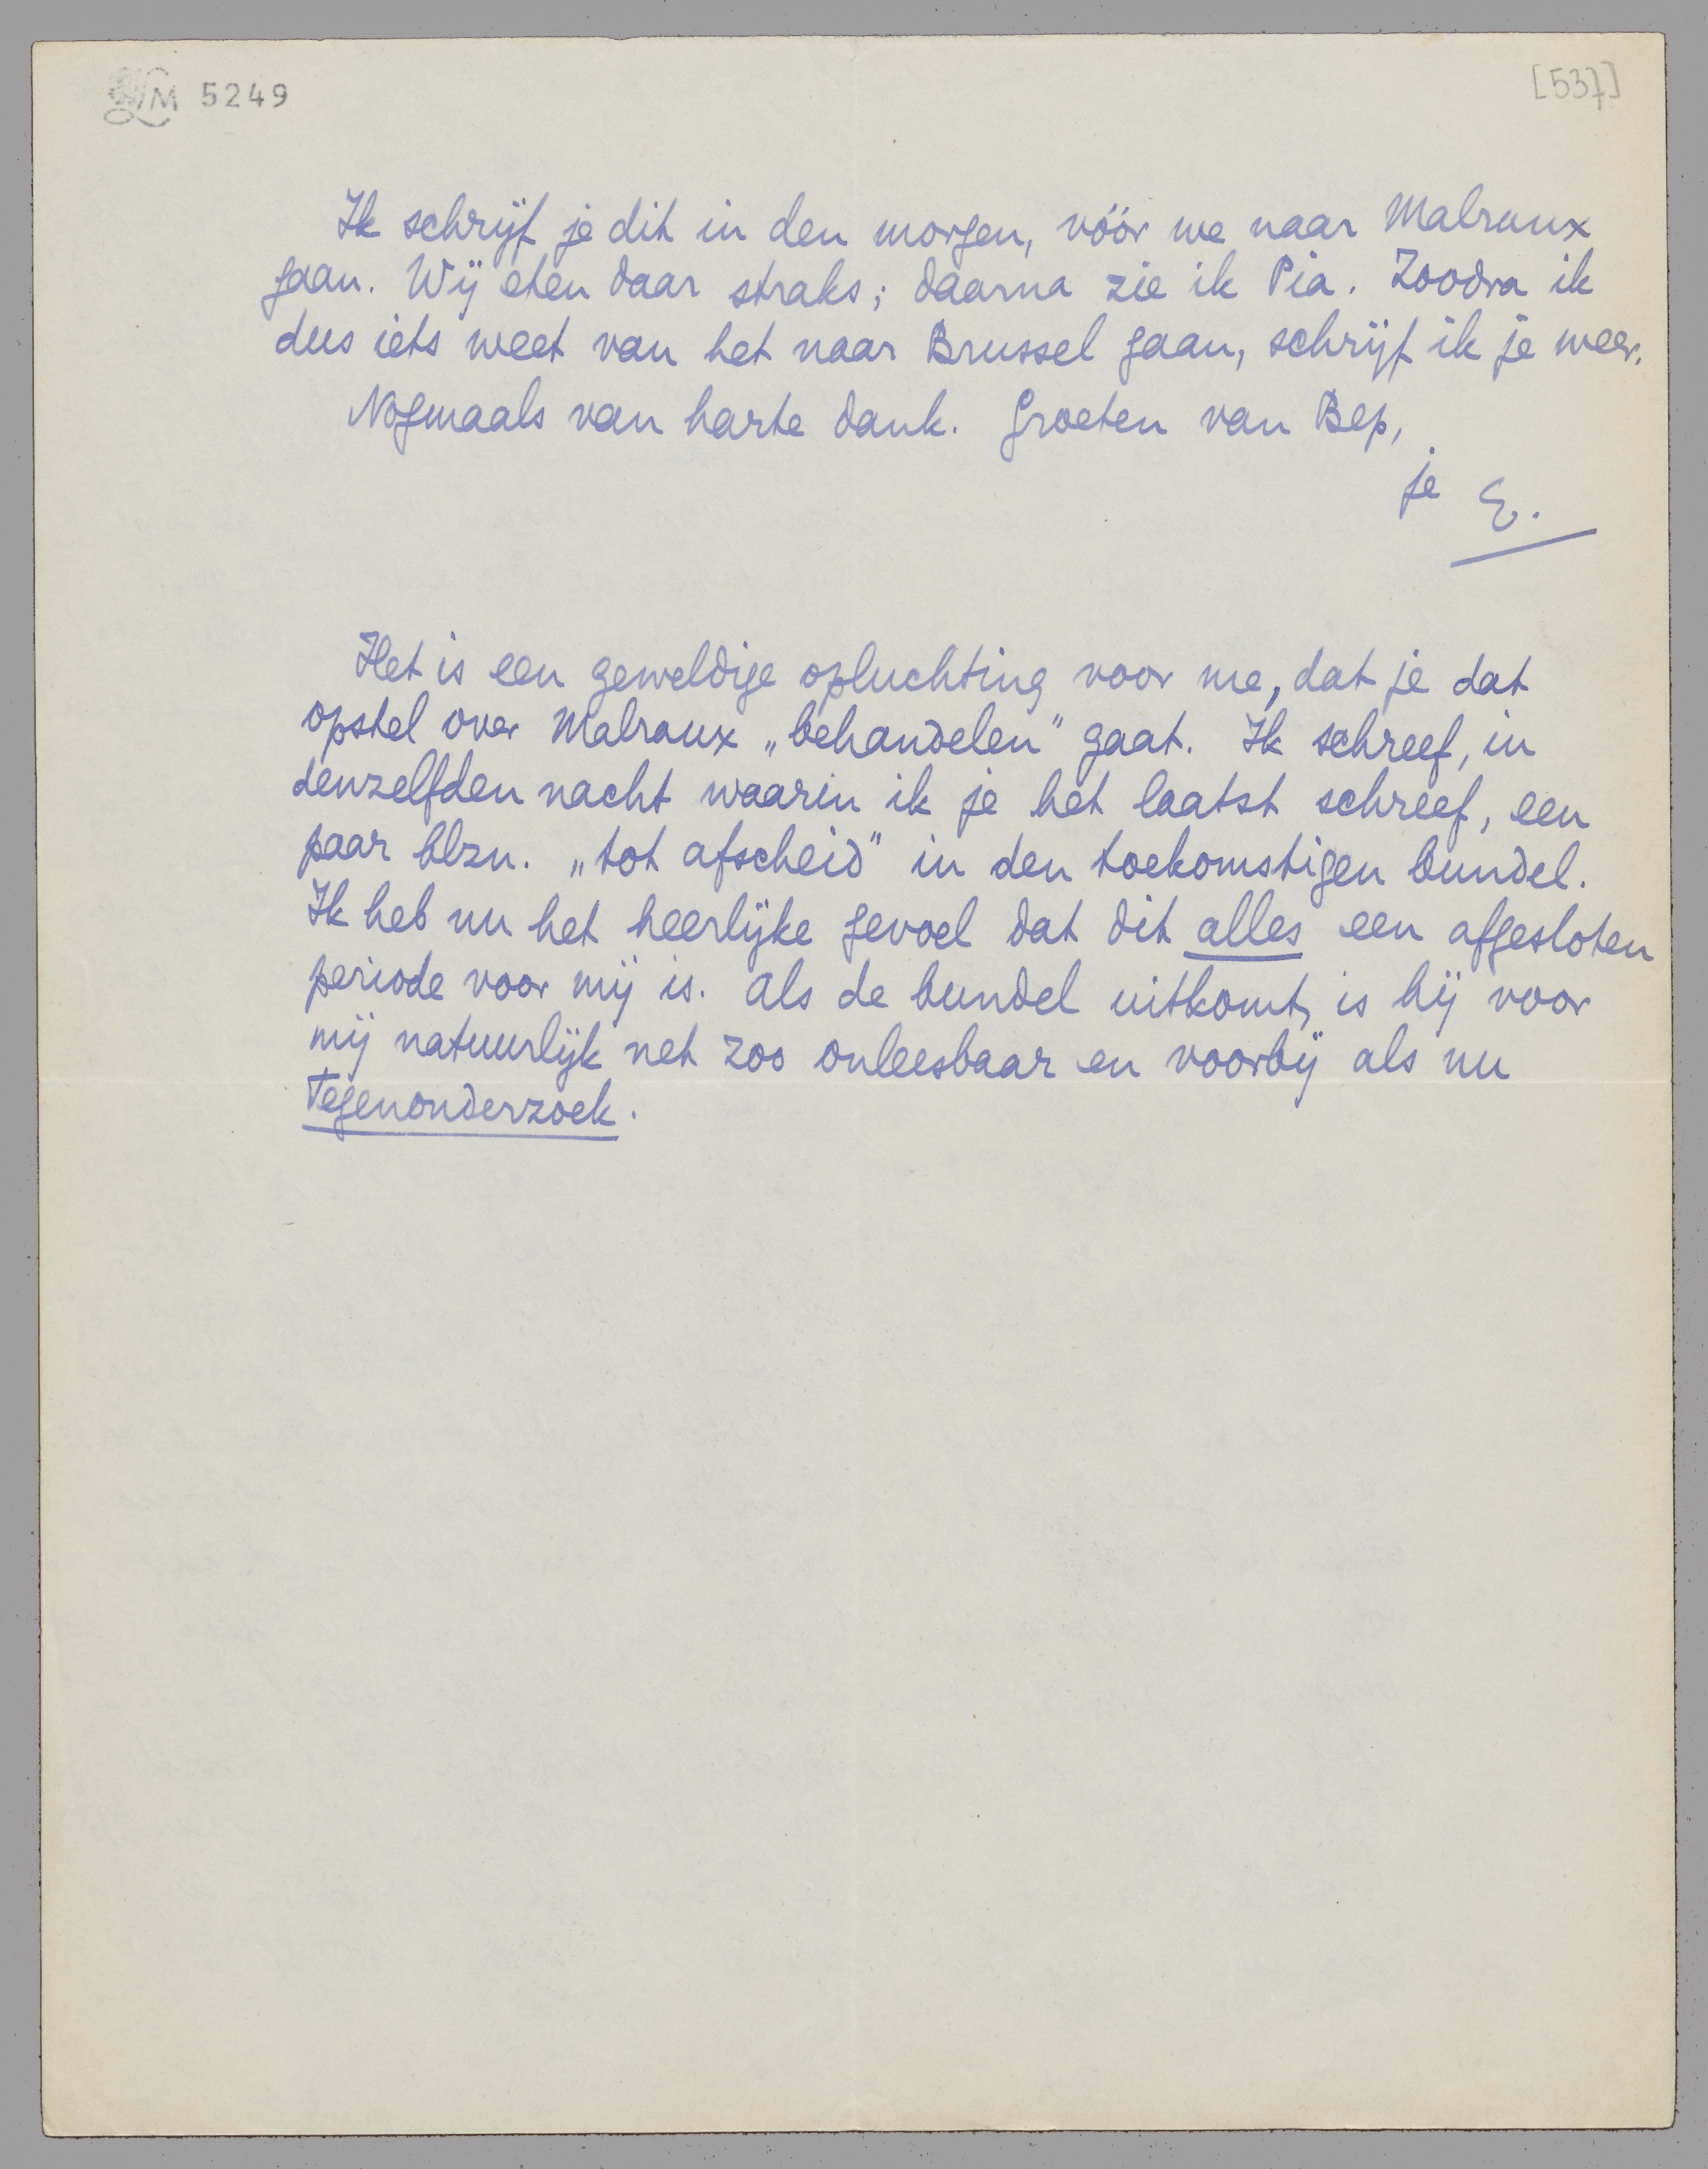 LM 5249
[537]
Ik schrijf je dit in den morgen, vóór we naar Malraux
gaan. Wij eten daar straks; daarna zie ik Pia. Zoodra ik
dus iets weet van het naar Brussel gaan, schrijf ik je weer.
Nogmaals van harte dank. Groeten van Bep,
je E.
Het is een geweldige opluchting voor me, dat je dat
opstel over Malraux „behandelen" gaat. Ik schreef, in
denzelfden nacht waarin ik je het laatst schreef, een
paar blzn. „tot afscheid" in den toekomstigen bundel.
Ik heb nu het heerlijke gevoel dat dit alles een afgesloten
periode voor mij is. Als de bundel uitkomt, is hij voor
mij natuurlijk net zoo onleesbaar en voorbij als nu
Tegenonderzoek.